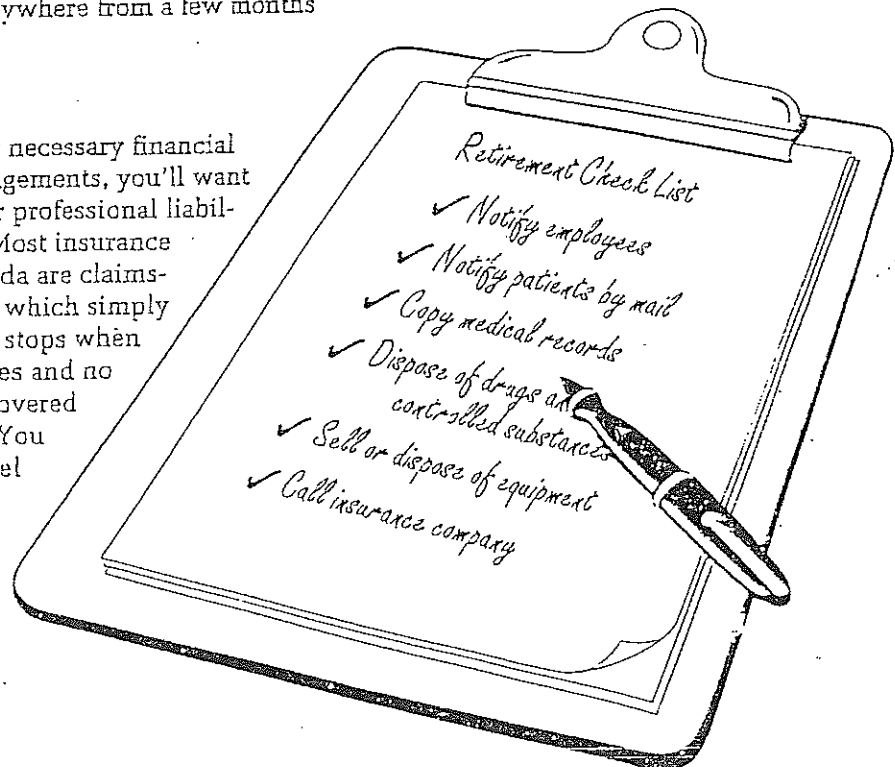 ywhere from a few months
necessary financial
gements, you'll want
r professional liabil-
Most insurance
da are claims-
which simply
stops when
es and no
overed
You
el
Retirement Check List
✓ Notify employees
✓ Notify patients by mail
✓ Copy medical records
✓ Dispose of drugs an
controlled substances
✓ Sell or dispose of equipment
✓ Call insurance company